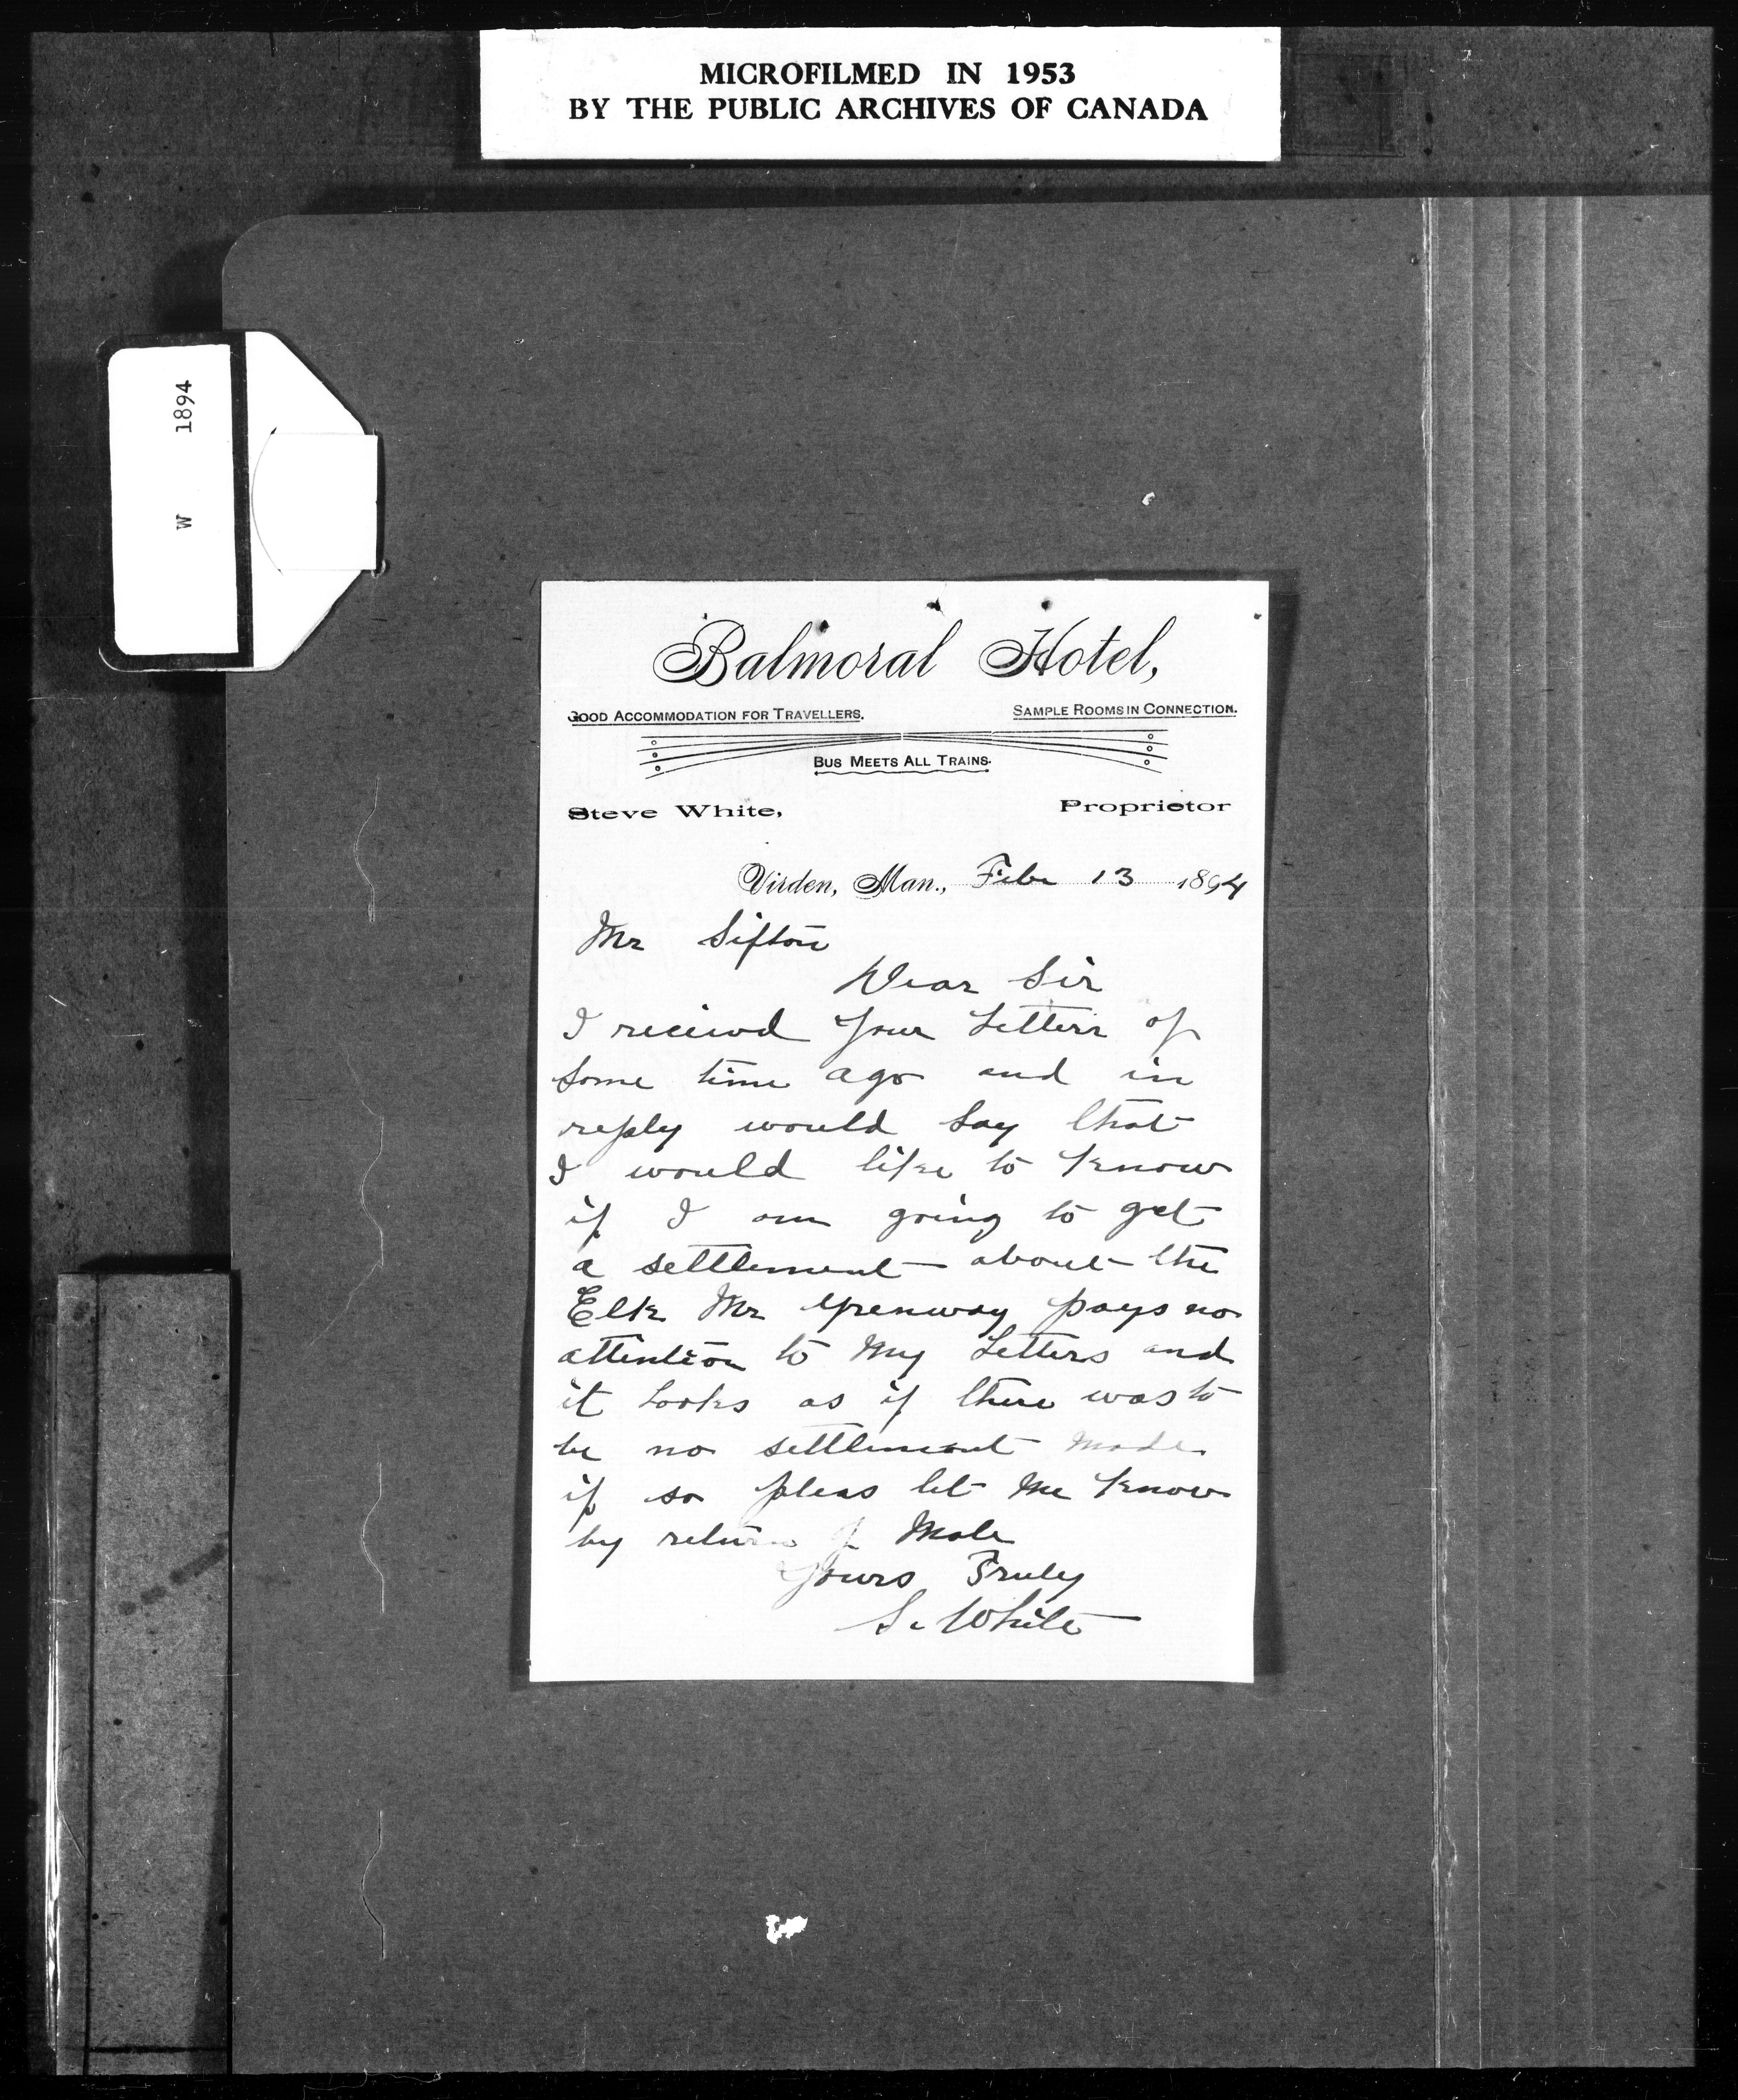 MICROFILMED IN 1953
BY THE PUBLIC ARCHIVES OF CANADA
W 1894
Balmoral Hotel,
GOOD ACCOMMODATION FOR TRAVELLERS. SAMPLE ROOMS IN CONNECTION.
BUS MEETS ALL TRAINS.
Steve White, Proprietor
Virden, Man., Feb 13 1894
Mr Sifton
Dear Sir
I recievd your Letter of
Some time ago and in
reply would Say that
I would like to know
if I am going to get
a settlement about the
Elk Mr Grenway pays no
attention to My Letters and
it Looks as if there was to
be no settlement made
if so pleas let Me know
by return of Male
Yours Truly
S. White